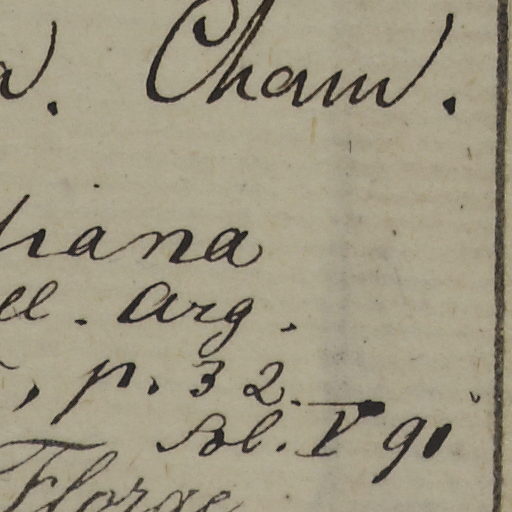 a. Cham.
piana
ell. Arg.
, p. 32.
Sbl. V 91
Florae